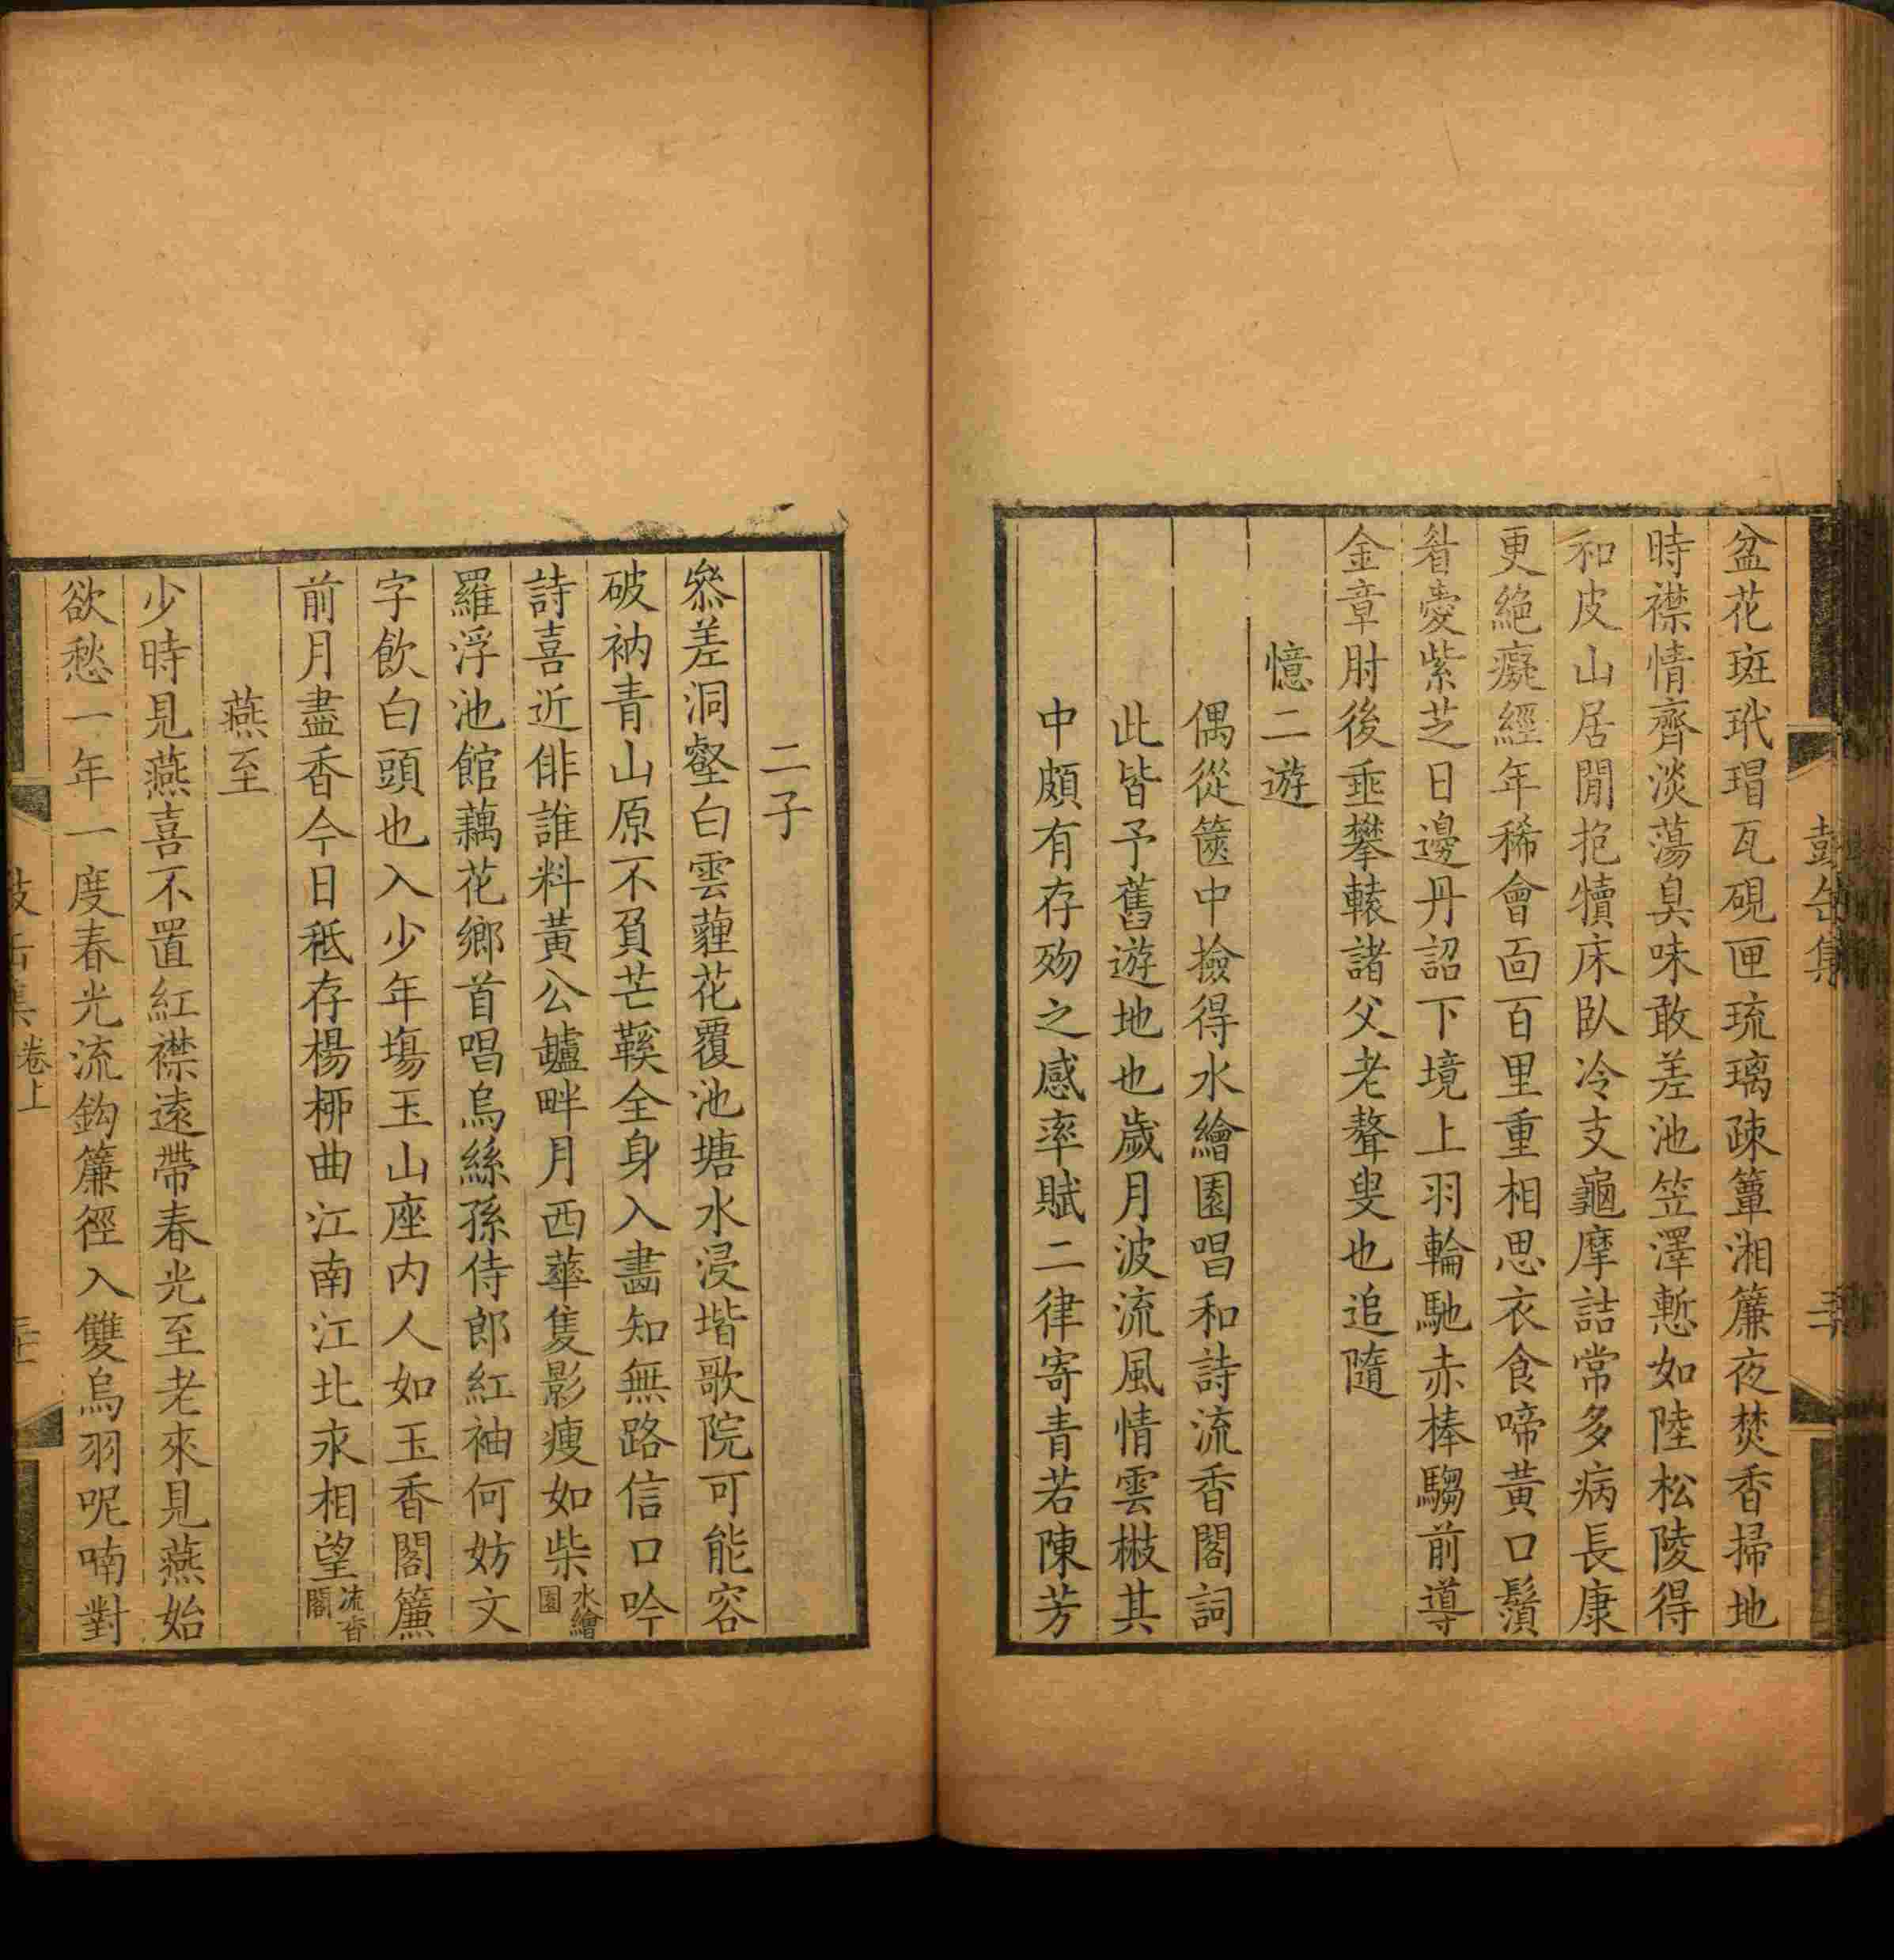 盆花斑玳瑁瓦硯匣琉璃疎簟湘簾夜焚香掃地
時襟情齊淡蕩臭味敢差池笠澤慙如陸松陵得
和皮山居閒抱犢床臥冷支龜摩詰常多病長康
更絕癡經年稀會面百里重相思衣食啼黃口鬚
眉憂紫芝日邊丹詔下境上羽輪馳赤棒騶前導
金章肘後垂攀轅諸父老聱叟也追隨
憶二遊
偶從篋中撿得水繪園唱和詩流香閣詞
此皆予舊遊地也歲月波流風情雲散其
中頗有存歿之感率賦二律寄青若陳芳
二子
叅差洞壑白雲薶花覆池塘水浸堦歌院可能容
破衲青山原不負芒鞵全身入畵知無路信口吟
詩喜近俳誰料黃公罏畔月西華隻影瘦如柴水繪園
羅浮池館藕花鄉首唱烏絲孫侍郎紅袖何妨文
字飲白頭也入少年塲玉山座内人如玉香閣簾
前月盡香今日秪存楊柳曲江南江北永相望流香閣
燕至
少時見燕喜不置紅襟遠帶春光至老來見燕始
欲愁一年一度春光流鈎簾徑入雙烏羽呢喃對
卷上